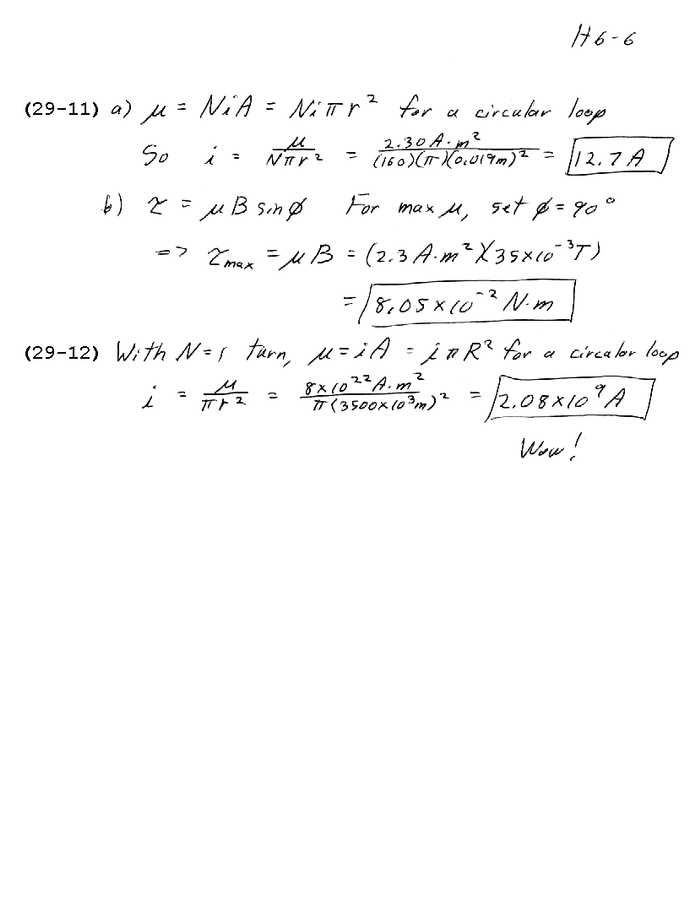 H6-6
(29-11) a) μ = NiA = Niπr² for a circular loop
So i = μ/Nπr² = 2.30 A·m²/(160)(π)(0.019m)² = 12.7 A
b) τ = μ B sinϕ For max μ, set ϕ = 90°
=> τmax = μ B = (2.3 A·m²)(35×10⁻³T)
= 8.05×10⁻² N·m
(29-12) With N=1 turn, μ = iA = iπR² for a circular loop
i = μ/πr² = 8×10²² A·m²/π(3500×10³m)² = 2.08×10⁹ A
Wow!